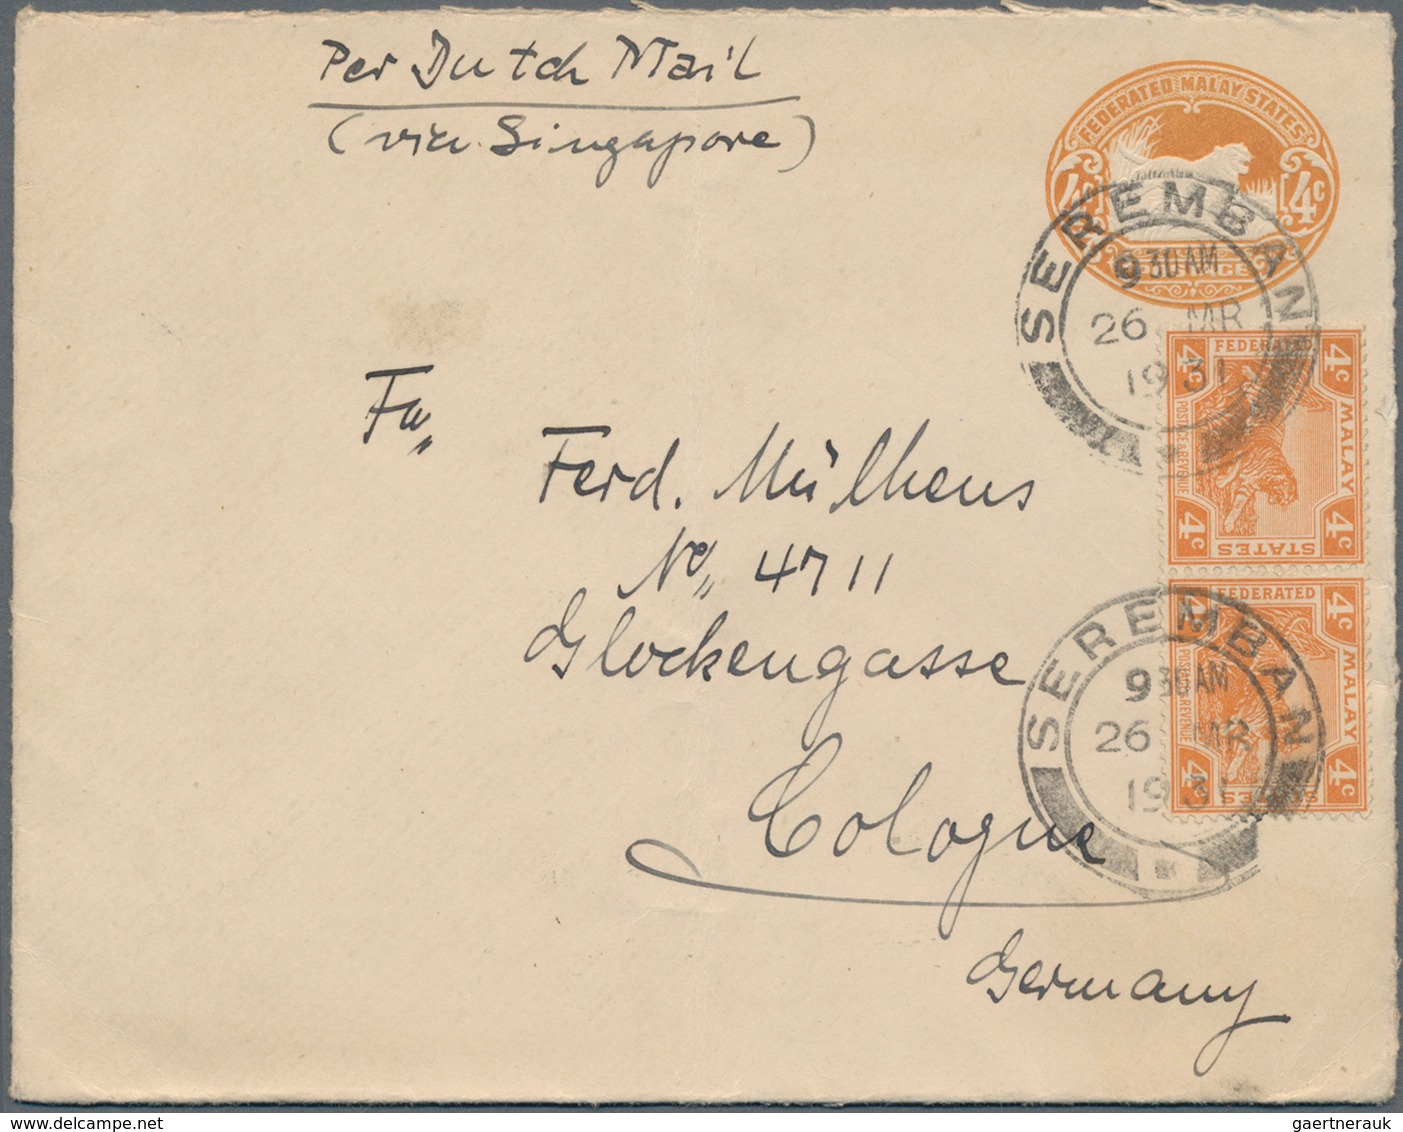 Per Dutch Mail
(via Singapore)
FEDERATED MALAY STATES
4c 4c
SEREMBAN
9 30 AM
26 MR
1931
Fa„
Ferd. Mülhens
No„ 4711
Glockengasse
Cologne
Germany
4c FEDERATED 4c
MALAY
POSTAGE & REVENUE
4c STATES 4c
4c FEDERATED 4c
MALAY
POSTAGE & REVENUE
4c STATES 4c
SEREMBAN
9 30 AM
26 MR
1931
gaertnerauk